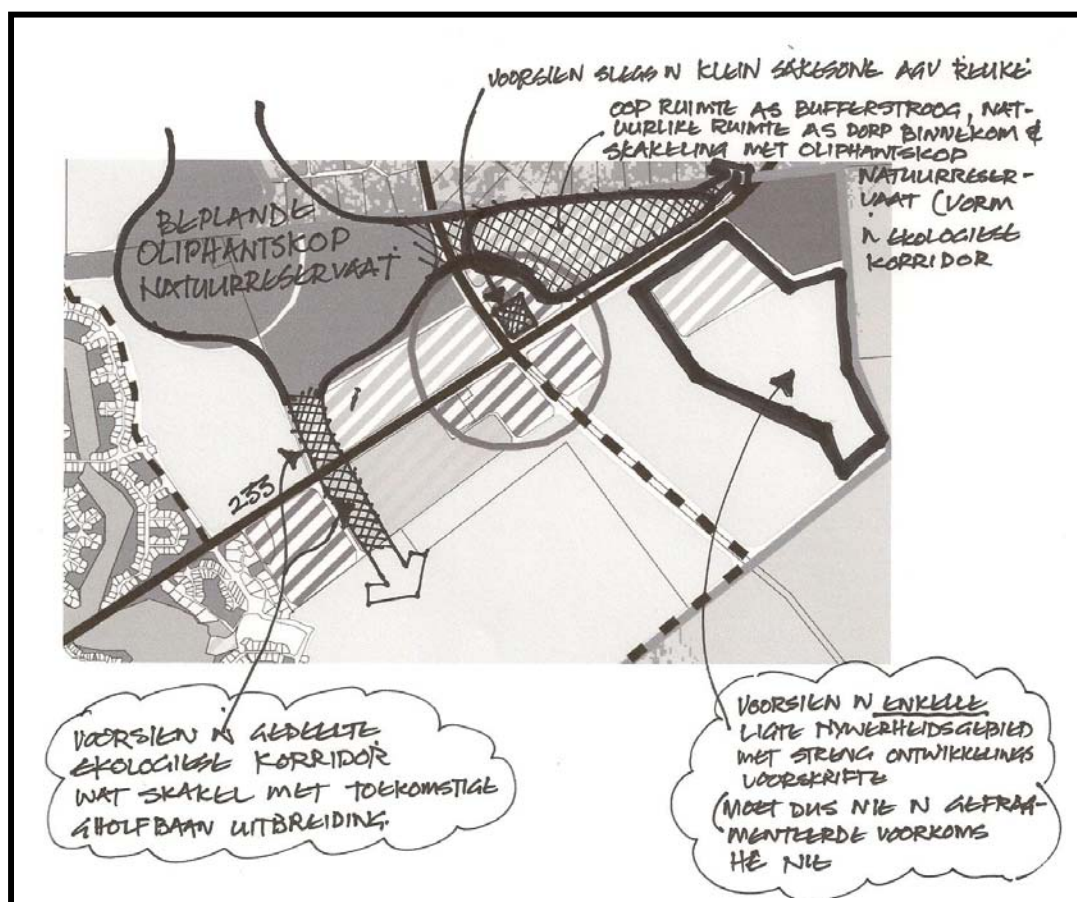 VOORSIEN SLEGS 'N KLEIN SAKESONE AGV REUKE
OOP RUIMTE AS BUFFERSTROOG, NAT-
UURLIKE RUIMTE AS DORP BINNEKOM &
SKAKELING MET OLIPHANTSKOP
NATUURRESER-
VAAT (VORM
'N EKOLOGIESE
KORRIDOR
BEPLANDE
OLIPHANTSKOP
NATUURRESERVAAT
233
VOORSIEN 'N GEDEELTE
EKOLOGIESE KORRIDOR
WAT SKAKEL MET TOEKOMSTIGE
GHOLFBAAN UITBREIDING.
VOORSIEN 'N ENKELLE
LIGTE NYWERHEIDSGEBIED
MET STRENG ONTWIKKELINGS
VOORSKRIFTE
(MOET DUS NIE 'N GEFRAG-
MENTEERDE VOORKOMS
HÊ NIE